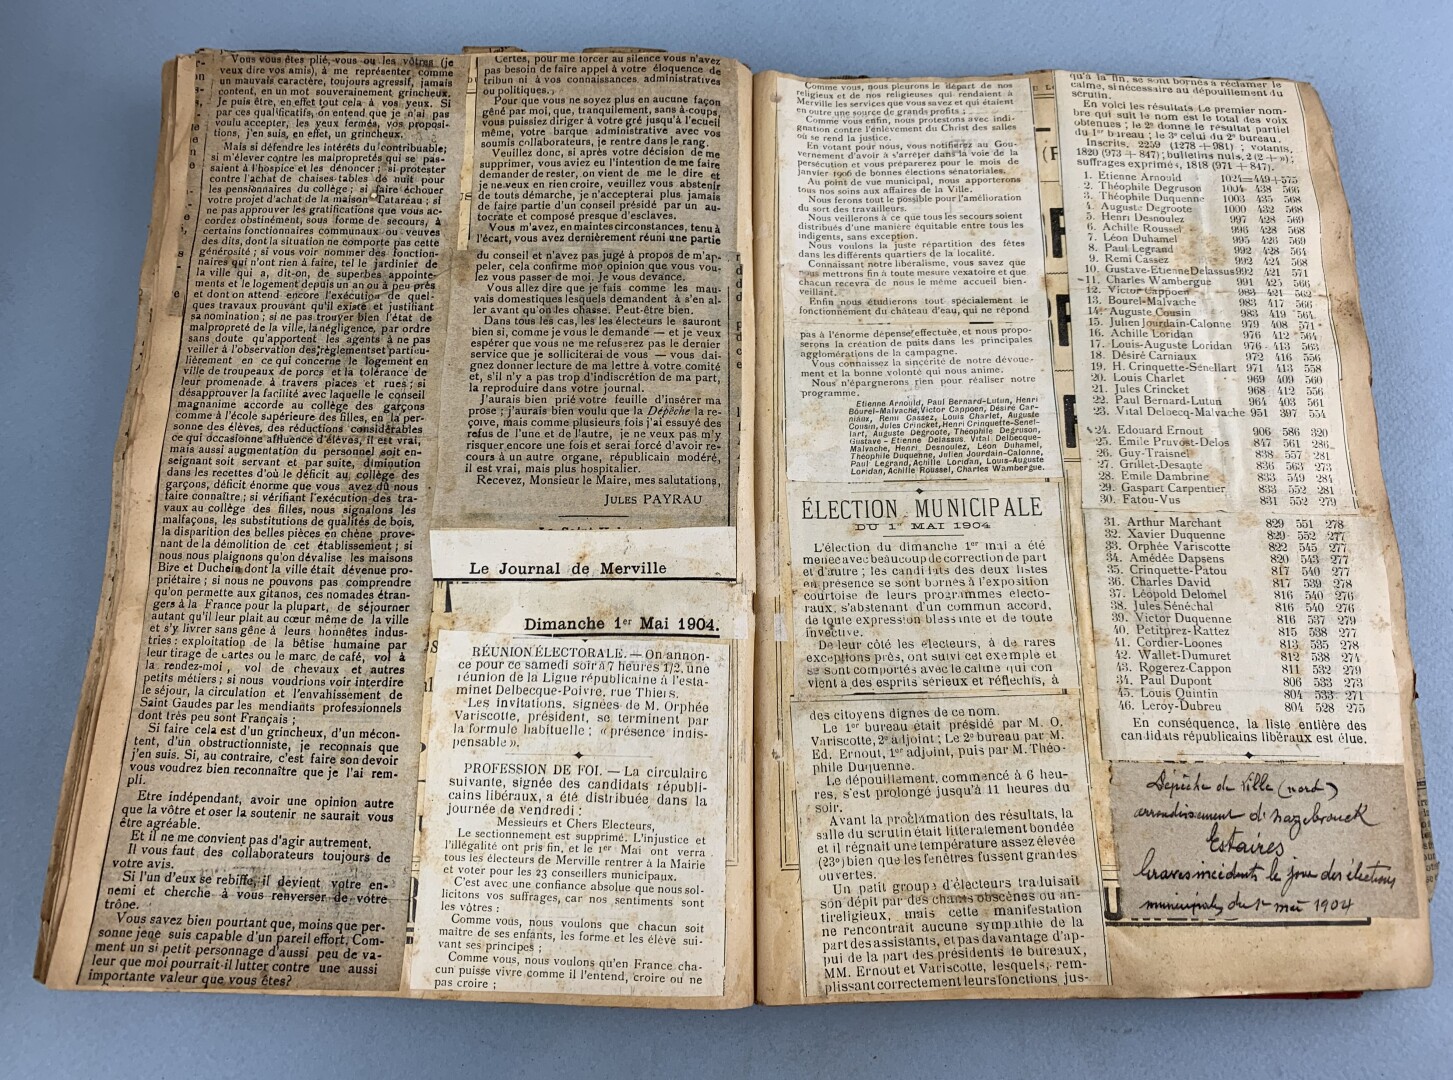 Vous vous êtes plié, vous ou les vôtres (je
veux dire vos amis), à me représenter comme
un mauvais caractère, toujours agressif, jamais
content, en un mot souverainement grincheux.
Je puis être, en effet tout cela à vos yeux. Si
par ces qualificatifs, on entend que je n'ai pas
voulu accepter, les yeux fermés, vos proposi-
tions, j'en suis, en effet, un grincheux.
Mais si défendre les intérêts du contribuable;
si m'élever contre les malpropretés qui se pas-
saient à l'hospice et les dénoncer; si protester
contre l'achat de chaises-tables de nuit pour
les pensionnaires du collège; si faire échouer
votre projet d'achat de la maison Tatareau; si
ne pas approuver les gratifications que vous ac-
cordez obstinément, sous forme de secours, à
certains fonctionnaires communaux ou veuves
des dits, dont la situation ne comporte pas cette
générosité; si vous voir nommer des fonction-
naires qui n'ont rien à faire, tel le jardinier de
la ville qui a, dit-on, de superbes appointe-
ments et le logement depuis un an ou à peu près
et dont on attend encore l'exécution de quel-
ques travaux prouvant qu'il existe et justifiant
sa nomination; si ne pas trouver bien l'état de
malpropreté de la ville, la négligence, par ordre
sans doute qu'apportent les agents à ne pas
veiller à l'observation des règlements et particu-
lièrement en ce qui concerne le logement en
ville de troupeaux de porcs et la tolérance de
leur promenade à travers places et rues; si
désapprouver la facilité avec laquelle le conseil
magnanime accorde au collège des garçons
comme à l'école supérieure des filles, en la per-
sonne des élèves, des réductions considérables
ce qui occasionne affluence d'élèves, il est vrai,
mais aussi augmentation du personnel soit en-
seignant soit servant et par suite, diminution
dans les recettes d'où le déficit au collège des
garçons, déficit énorme que vous avez dû nous
faire connaître; si vérifiant l'exécution des tra-
vaux au collège des filles, nous signalons les
malfaçons, les substitutions de qualités de bois,
la disparition des belles pièces en chêne prove-
nant de la démolition de cet établissement; si
nous nous plaignons qu'on dévalise les maisons
Bize et Duchein dont la ville était devenue pro-
priétaire; si nous ne pouvons pas comprendre
qu'on permette aux gitanos, ces nomades étran-
gers à la France pour la plupart, de séjourner
autant qu'il leur plait au cœur même de la ville
et s'y livrer sans gêne à leurs honnêtes indus-
tries: exploitation de la bêtise humaine par
leur tirage de cartes ou le marc de café, vol à
la rendez-moi, vol de chevaux et autres
petits métiers; si nous voudrions voir interdire
le séjour, la circulation et l'envahissement de
Saint Gaudes par les mendiants professionnels
dont très peu sont Français;
Si faire cela est d'un grincheux, d'un mécon-
tent, d'un obstructionniste, je reconnais que
j'en suis. Si, au contraire, c'est faire son devoir
vous voudrez bien reconnaître que je l'ai rem-
pli.
Etre indépendant, avoir une opinion autre
que la vôtre et oser la soutenir ne saurait vous
être agréable.
Et il ne me convient pas d'agir autrement.
Il vous faut des collaborateurs toujours de
votre avis.
Si l'un d'eux se rebiffe, il devient votre en-
nemi et cherche à vous renverser de votre
trône.
Vous savez bien pourtant que, moins que per-
sonne je ne suis capable d'un pareil effort. Com-
ment un si petit personnage d'aussi peu de va-
leur que moi pourrait-il lutter contre une aussi
importante valeur que vous êtes?
Certes, pour me forcer au silence vous n'avez
pas besoin de faire appel à votre éloquence de
tribun ni à vos connaissances administratives
ou politiques.
Pour que vous ne soyez plus en aucune façon
gêné par moi, que, tranquilement, sans à-coups,
vous puissiez diriger à votre gré jusqu'à l'écueil
même, votre barque administrative avec vos
soumis collaborateurs, je rentre dans le rang.
Veuillez donc, si après votre décision de me
supprimer, vous aviez eu l'intention de me faire
demander de rester, on vient de me le dire et
je ne veux en rien croire, veuillez vous abstenir
de touts démarche, je n'accepterai plus jamais
de faire partie d'un conseil présidé par un au-
tocrate et composé presque d'esclaves.
Vous m'avez, en maintes circonstances, tenu à
l'écart, vous avez dernièrement réuni une partie
du conseil et n'avez pas jugé à propos de m'ap-
peler, cela confirme mon opinion que vous vou-
lez vous passer de moi. Je vous devance.
Vous allez dire que je fais comme les mau-
vais domestiques lesquels demandent à s'en al-
ler avant qu'on les chasse. Peut-être bien.
Dans tous les cas, les les électeurs le sauront
bien si, comme je vous le demande — et je veux
espérer que vous ne me refuserez pas le dernier
service que je solliciterai de vous — vous dai-
gnez donner lecture de ma lettre à votre comité
et, s'il n'y a pas trop d'indiscrétion de ma part,
la reproduire dans votre journal.
J'aurais bien prié votre feuille d'insérer ma
prose; j'aurais bien voulu que la Dépêche la re-
çoive, mais comme plusieurs fois j'ai essuyé des
refus de l'une et de l'autre, je ne veux pas m'y
risquer encore une fois et serai forcé d'avoir re-
cours à un autre organe, républicain modéré,
il est vrai, mais plus hospitalier.
Recevez, Monsieur le Maire, mes salutations,
JULES PAYRAU
Le Journal de Merville
Dimanche 1er Mai 1904.
RÉUNION ÉLECTORALE. — On annon-
ce pour ce samedi soir à 7 heures 1/2, une
réunion de la Ligue républicaine à l'esta-
minet Delbecque-Poivre, rue Thiers.
Les invitations, signées de M. Orphée
Variscotte, président, se terminent par
la formule habituelle: « présence indis-
pensable ».
PROFESSION DE FOI. — La circulaire
suivante, signée des candidats républi-
cains libéraux, a été distribuée dans la
journée de vendredi:
Messieurs et Chers Electeurs,
Le sectionnement est supprimé. L'injustice et
l'illégalité ont pris fin, et le 1er Mai ont verra
tous les électeurs de Merville rentrer à la Mairie
et voter pour les 23 conseillers municipaux.
C'est avec une confiance absolue que nous sol-
licitons vos suffrages, car nos sentiments sont
les vôtres:
Comme vous, nous voulons que chacun soit
maître de ses enfants, les forme et les élève sui-
vant ses principes;
Comme vous, nous voulons qu'en France cha-
cun puisse vivre comme il l'entend, croire ou ne
pas croire;
Comme vous, nous pleurons le départ de nos
religieux et de nos religieuses qui rendaient à
Merville les services que vous savez et qui étaient
en outre une source de grands profits;
Comme vous enfin, nous protestons avec indi-
gnation contre l'enlèvement du Christ des salles
où se rend la justice.
En votant pour nous, vous notifierez au Gou-
vernement d'avoir à s'arrêter dans la voie de la
persécution et vous préparerez pour le mois de
janvier 1906 de bonnes élections sénatoriales.
Au point de vue municipal, nous apporterons
tous nos soins aux affaires de la Ville.
Nous ferons tout le possible pour l'amélioration
du sort des travailleurs.
Nous veillerons à ce que tous les secours soient
distribués d'une manière équitable entre tous les
indigents, sans exception.
Nous voulons la juste répartition des fêtes
dans les différents quartiers de la localité.
Connaissant notre libéralisme, vous savez que
nous mettrons fin à toute mesure vexatoire et que
chacun recevra de nous le même accueil bien-
veillant.
Enfin nous étudierons tout spécialement le
fonctionnement du château d'eau, qui ne répond
pas à l'énorme dépense effectuée, et nous propo-
serons la création de puits dans les principales
agglomérations de la campagne.
Vous connaissez la sincérité de notre dévoue-
ment et la bonne volonté qui nous anime.
Nous n'épargnerons rien pour réaliser notre
programme.
Etienne Arnould, Paul Bernard-Lutun, Henri
Bourel-Malvache, Victor Cappoen, Désiré Car-
niaux, Remi Cassez, Louis Charlet, Auguste
Cousin, Jules Crincket, Henri Crinquette-Sénel-
lart, Auguste Degroote, Théophile Degruson,
Gustave-Etienne Delassus, Vital Delbecque-
Malvache, Henri Desnoulez, Léon Duhamel,
Théophile Duquenne, Julien Jourdain-Calonne,
Paul Legrand, Achille Loridan, Louis-Auguste
Loridan, Achille Roussel, Charles Wambergue.
ÉLECTION MUNICIPALE
DU 1er MAI 1904
L'élection du dimanche 1er mai a été
menée avec beaucoup de correction de part
et d'autre; les candidats des deux listes
en présence se sont bornés à l'exposition
courtoise de leurs programmes électo-
raux, s'abstenant d'un commun accord,
de toute expression blessante et de toute
invective.
De leur côté les électeurs, à de rares
exceptions près, ont suivi cet exemple et
se sont comportés avec le calme qui con-
vient à des esprits sérieux et réfléchis, à
des citoyens dignes de ce nom.
Le 1er bureau était présidé par M. O.
Variscotte, 2e adjoint; Le 2e bureau par M.
Ed. Ernout, 1er adjoint, puis par M. Théo-
phile Duquenne.
Le dépouillement, commencé à 6 heu-
res, s'est prolongé jusqu'à 11 heures du
soir.
Avant la proclamation des résultats, la
salle du scrutin était litteralement bondée
et il régnait une température assez élevée
(23°) bien que les fenêtres fussent grandes
ouvertes.
Un petit groupe d'électeurs traduisait
son dépit par des chants obscènes ou an-
tireligieux, mais cette manifestation
ne rencontrait aucune sympathie de la
part des assistants, et pas davantage d'ap-
pui de la part des présidents de bureaux,
MM. Ernout et Variscotte, lesquels, rem-
plissant correctement leurs fonctions jus-
qu'à la fin, se sont bornés à réclamer le
calme, si nécessaire au dépouillement du
scrutin.
En voici les résultats Le premier nom-
bre qui suit le nom est le total des voix
obtenues; le 2e donne le résultat partiel
du 1er bureau; le 3e celui du 2e bureau.
Inscrits, 2259 (1278 + 981); votants,
1820 (973 + 847); bulletins nuls, 2 (2 + »);
suffrages exprimés, 1818 (971 + 847).
1. Etienne Arnould 1024=449+575
2. Théophile Degruson 1004 438 566
3. Théophile Duquenne 1003 435 568
4. Auguste Degroote 1000 432 568
5. Henri Desnoulez 997 428 569
6. Achille Roussel 996 428 568
7. Léon Duhamel 995 426 569
8. Paul Legrand 992 428 564
9. Remi Cassez 992 424 568
10. Gustave-Etienne Delassus 992 421 571
11. Charles Wambergue 991 425 566
12. Victor Cappoen 983 421 562
13. Bourel-Malvache 983 417 566
14. Auguste Cousin 983 419 564
15. Julien Jourdain-Calonne 979 408 571
16. Achille Loridan 976 412 564
17. Louis-Auguste Loridan 976 413 563
18. Désiré Carniaux 972 416 556
19. H. Crinquette-Sénellart 971 413 558
20. Louis Charlet 969 409 560
21. Jules Crincket 968 412 556
22. Paul Bernard-Lutun 964 403 561
23. Vital Delbecq-Malvache 951 397 554
24. Edouard Ernout 906 586 320
25. Emile Pruvost-Delos 847 561 286
26. Guy-Traisnel 838 557 281
27. Grillet-Desante 836 563 273
28. Emile Dambrine 833 549 284
29. Gaspart Carpentier 833 552 281
30. Fatou-Vus 831 552 279
31. Arthur Marchant 829 551 278
32. Xavier Duquenne 829 552 277
33. Orphée Variscotte 822 545 277
34. Amédée Dapsens 820 543 277
35. Crinquette-Patou 817 540 277
36. Charles David 817 539 278
37. Léopold Delomel 816 540 276
38. Jules Sénéchal 816 540 276
39. Victor Duquenne 816 537 279
40. Petitprez-Rattez 815 538 277
41. Cordier-Loones 813 535 278
42. Wallet-Dumuret 812 538 274
43. Rogerez-Cappon 811 532 279
34. Paul Dupont 806 533 273
45. Louis Quintin 804 533 271
46. Leroy-Dubreu 804 528 275
En conséquence, la liste entière des
candidats républicains libéraux est élue.
Dépêche de Lille (nord)
arrondissement d'hazebrouck
Estaires
Graves incidents le jour des élections
municipales du 1er mai 1904